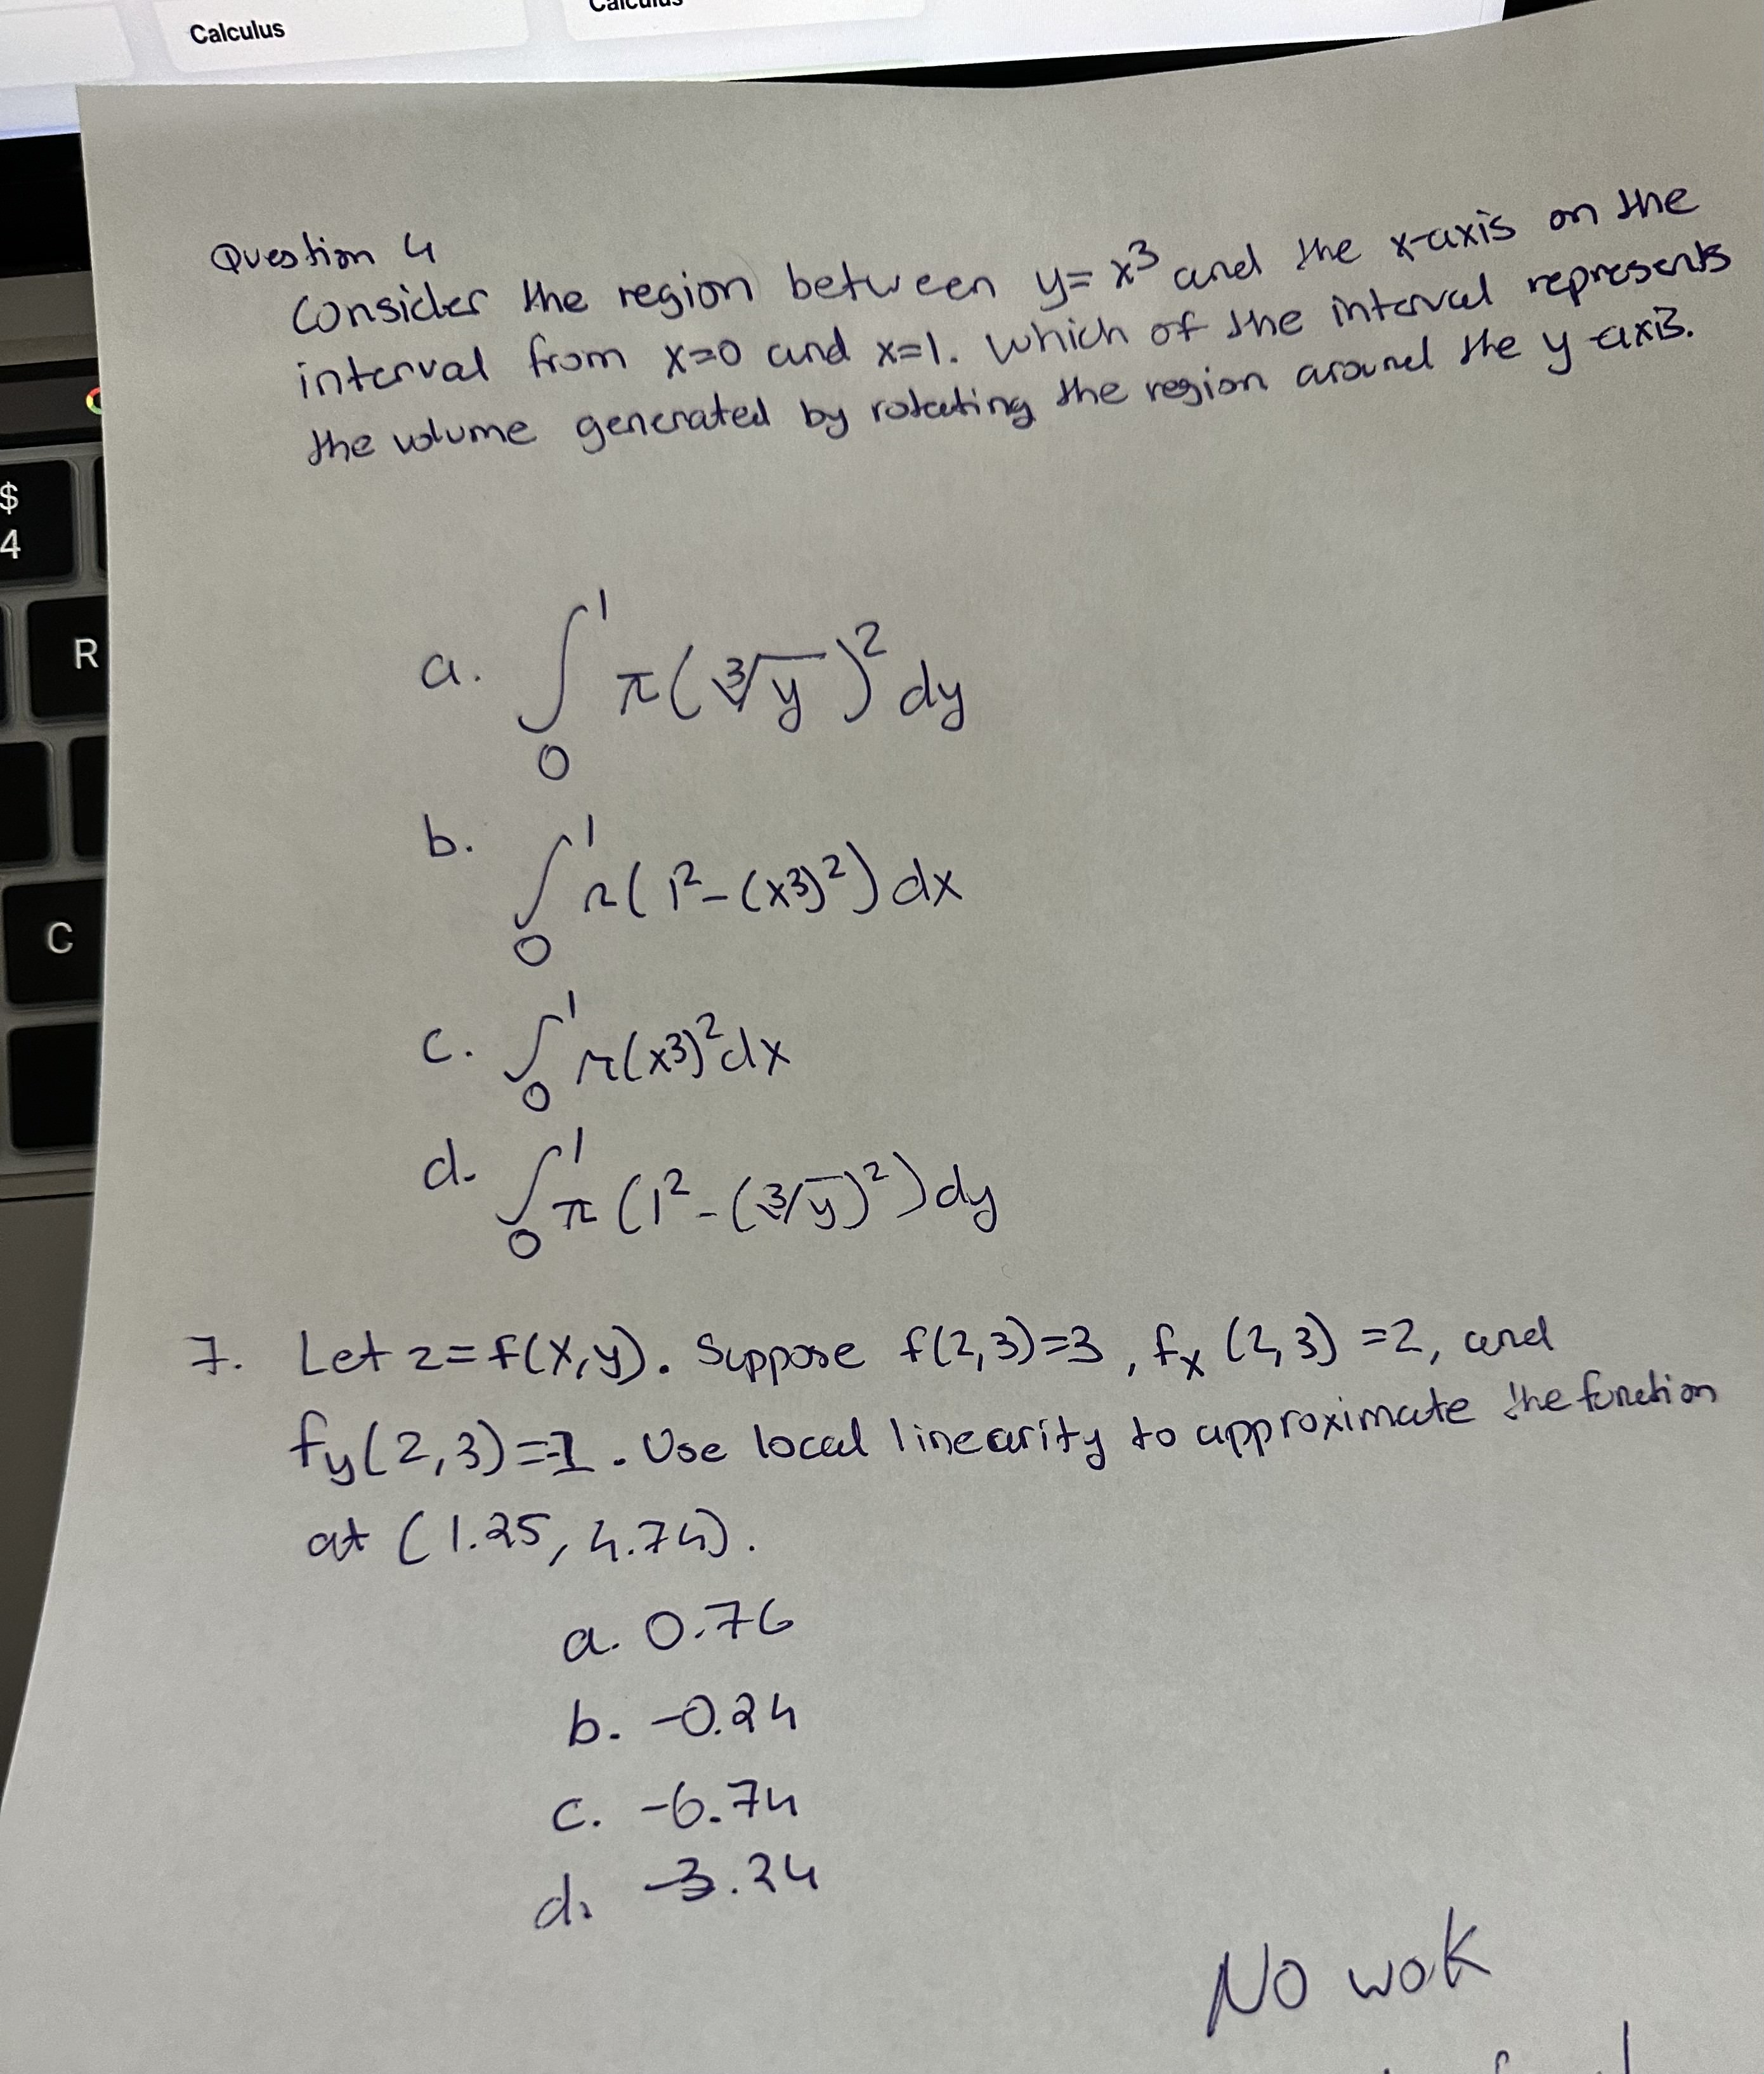 Calculus
Calculus
$
4
R
C
Question 4
Consider the region between y= x³ and the x-axis on the
interval from x=0 and x=1. Which of the interval represents
the volume generated by rotating the region around the y-axis.
a. ∫₀¹ π(∛y)² dy
b. ∫₀¹ π(1²-(x3)²) dx
c. ∫₀¹ π(x3)² dx
d. ∫₀¹ π (1²-(∛y)²) dy
7. Let z=f(x,y). Suppose f(2,3)=3, fx (2,3) =2, and
fy(2,3)=-1. Use local linearity to approximate the function
at (1.25, 4.74).
a. 0.76
b. -0.24
c. -6.74
d. -3.24
No wok